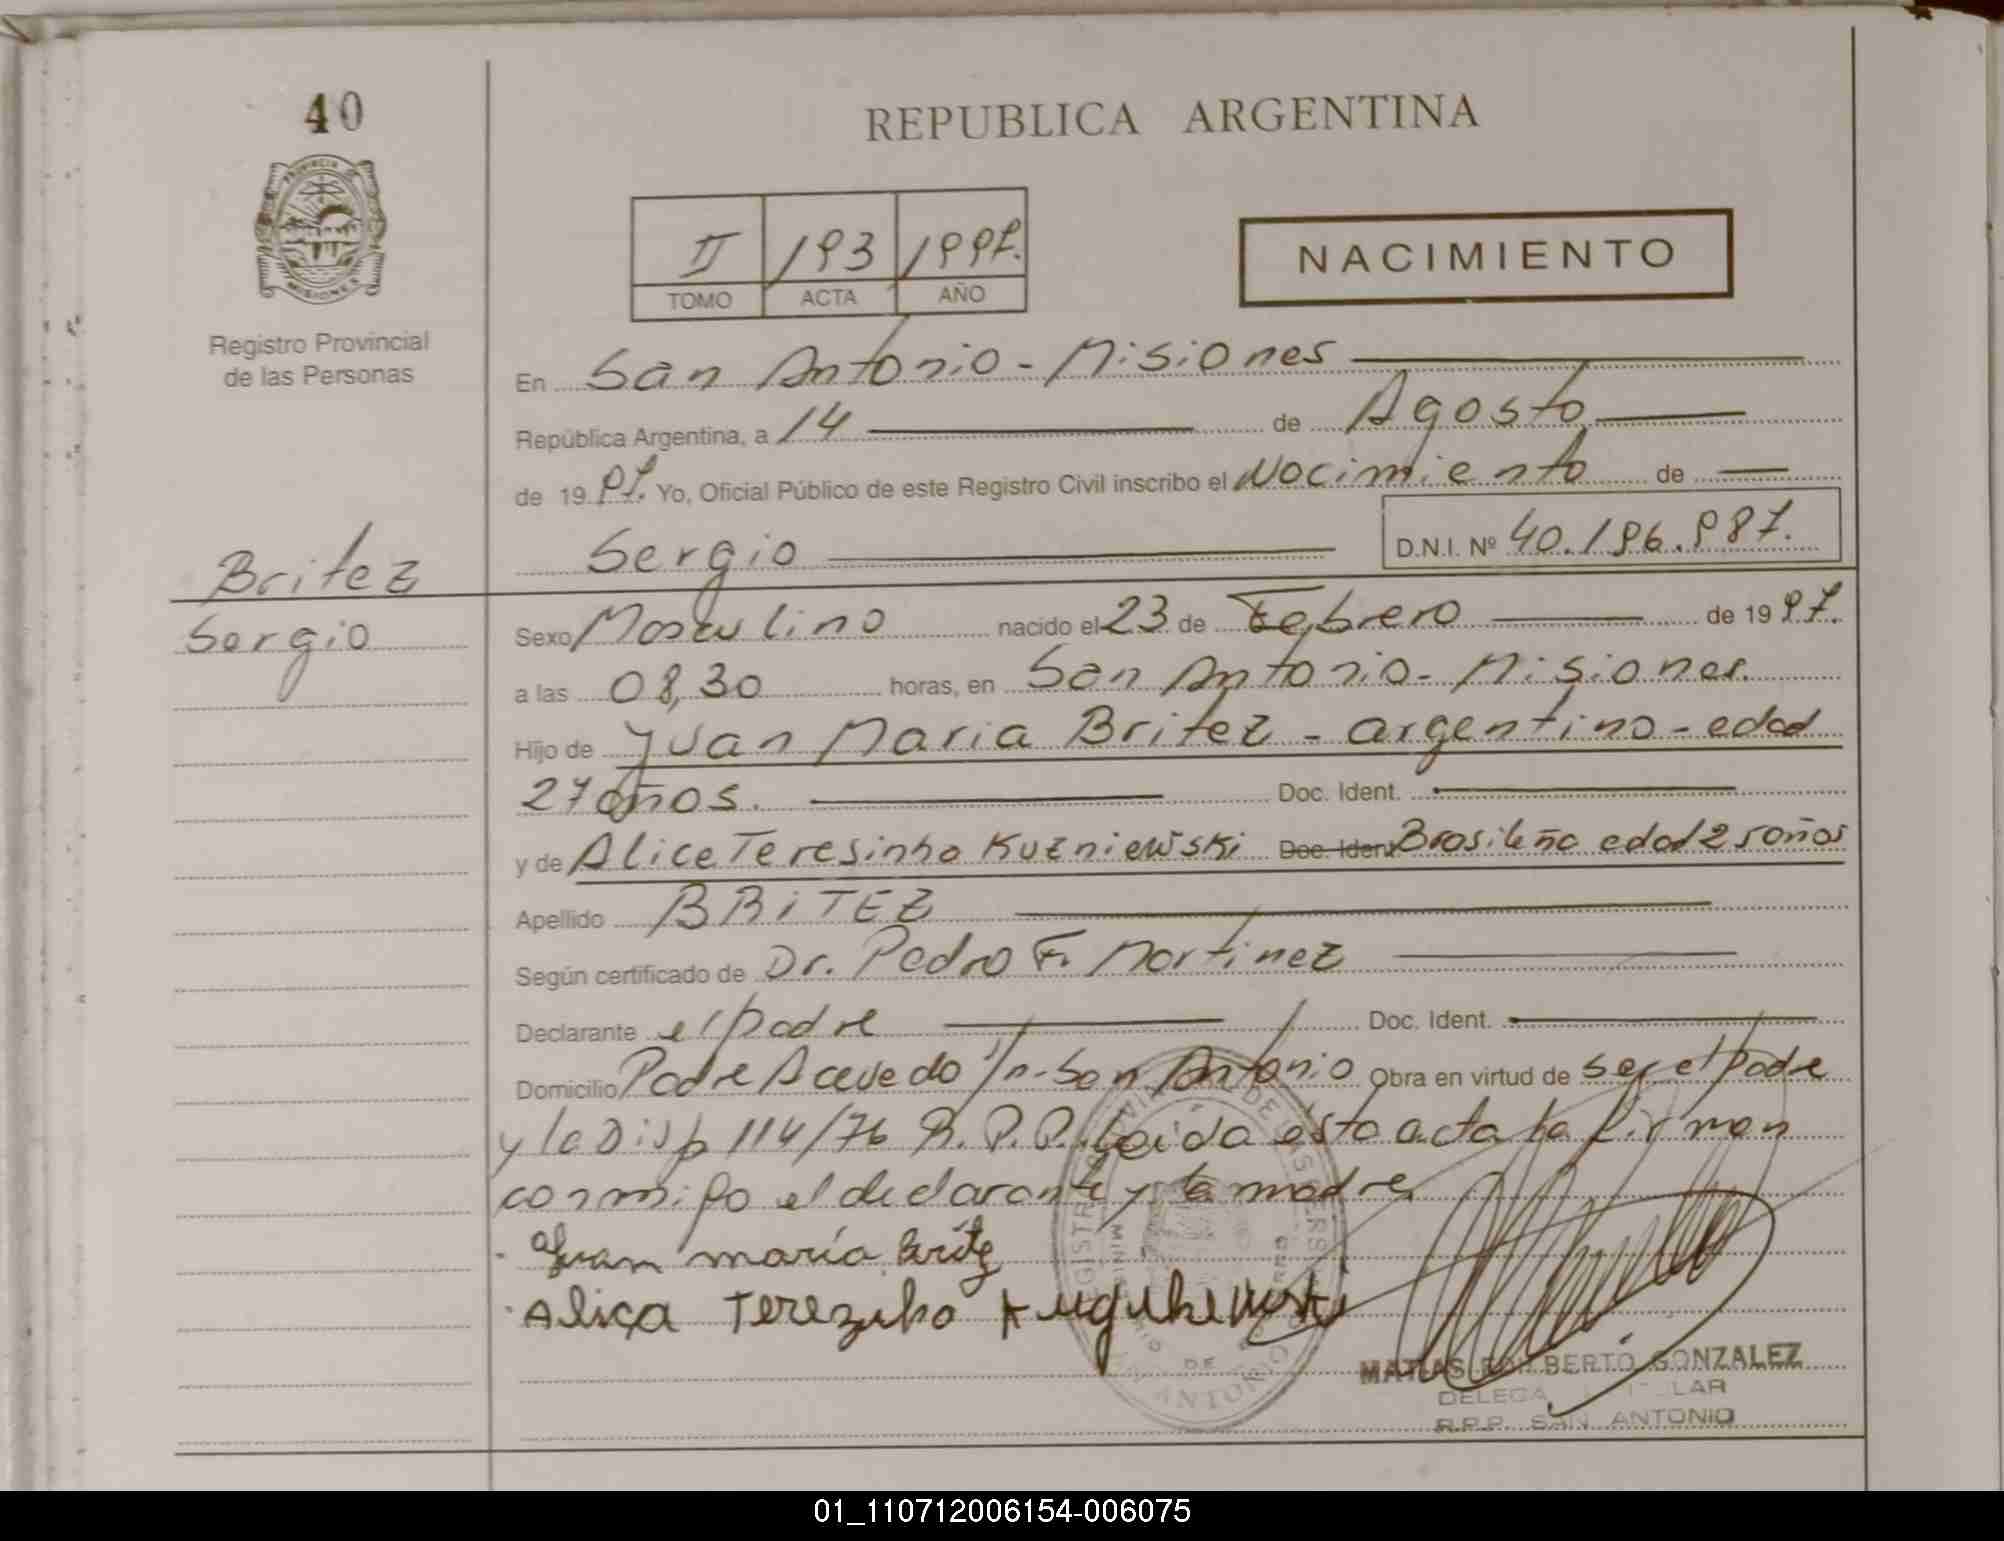 40
REPUBLICA ARGENTINA
PROVINCIA DE
MISIONES
II 193 1997.
TOMO ACTA AÑO
NACIMIENTO
Registro Provincial
de las Personas
En San Antonio - Misiones
República Argentina, a 14 de Agosto
de 19 97. Yo, Oficial Público de este Registro Civil inscribo el Nacimiento de
Sergio D.N.I. Nº 40.196.987.
Britez
Sergio
Sexo Masculino nacido el 23 de Febrero de 19 97.
a las 08,30 horas, en San Antonio - Misiones.
Hijo de Juan Maria Britez - argentino - edad
27 años. Doc. Ident.
y de Alice Teresinha Kuzniewski Doc. Ident Brasileña edad 25 años
Apellido BRITEZ
Según certificado de Dr. Pedro F. Martinez
Declarante el padre Doc. Ident.
Domicilio Padre Acevedo s/n - San Antonio Obra en virtud de ser el padre
y la Disp 114/76 R.P.P. Leida esta acta la firman
conmigo el declarante y la madre
Juan maría Britez
Aliça Tereziho
MATIAS EDILBERTO GONZALEZ
R.P.P. SAN ANTONIO
01_110712006154-006075